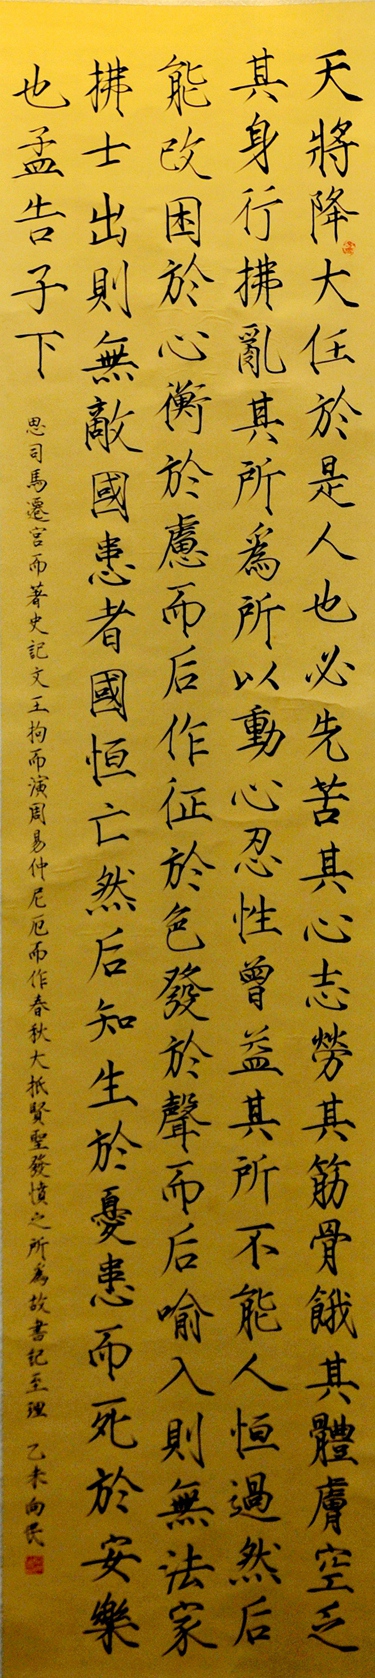 天將降大任於是人也必先苦其心志勞其筋骨餓其體膚空乏
其身行拂亂其所爲所以動心忍性曾益其所不能人恒過然后
能改困於心衡於慮而后作征於色發於聲而后喻入則無法家
拂士出則無敵國患者國恒亡然后知生於憂患而死於安樂
也孟告子下
思司馬遷宮而著史記文王拘而演周易仲尼厄而作春秋大抵賢聖發憤之所爲故書記至理 乙未向民